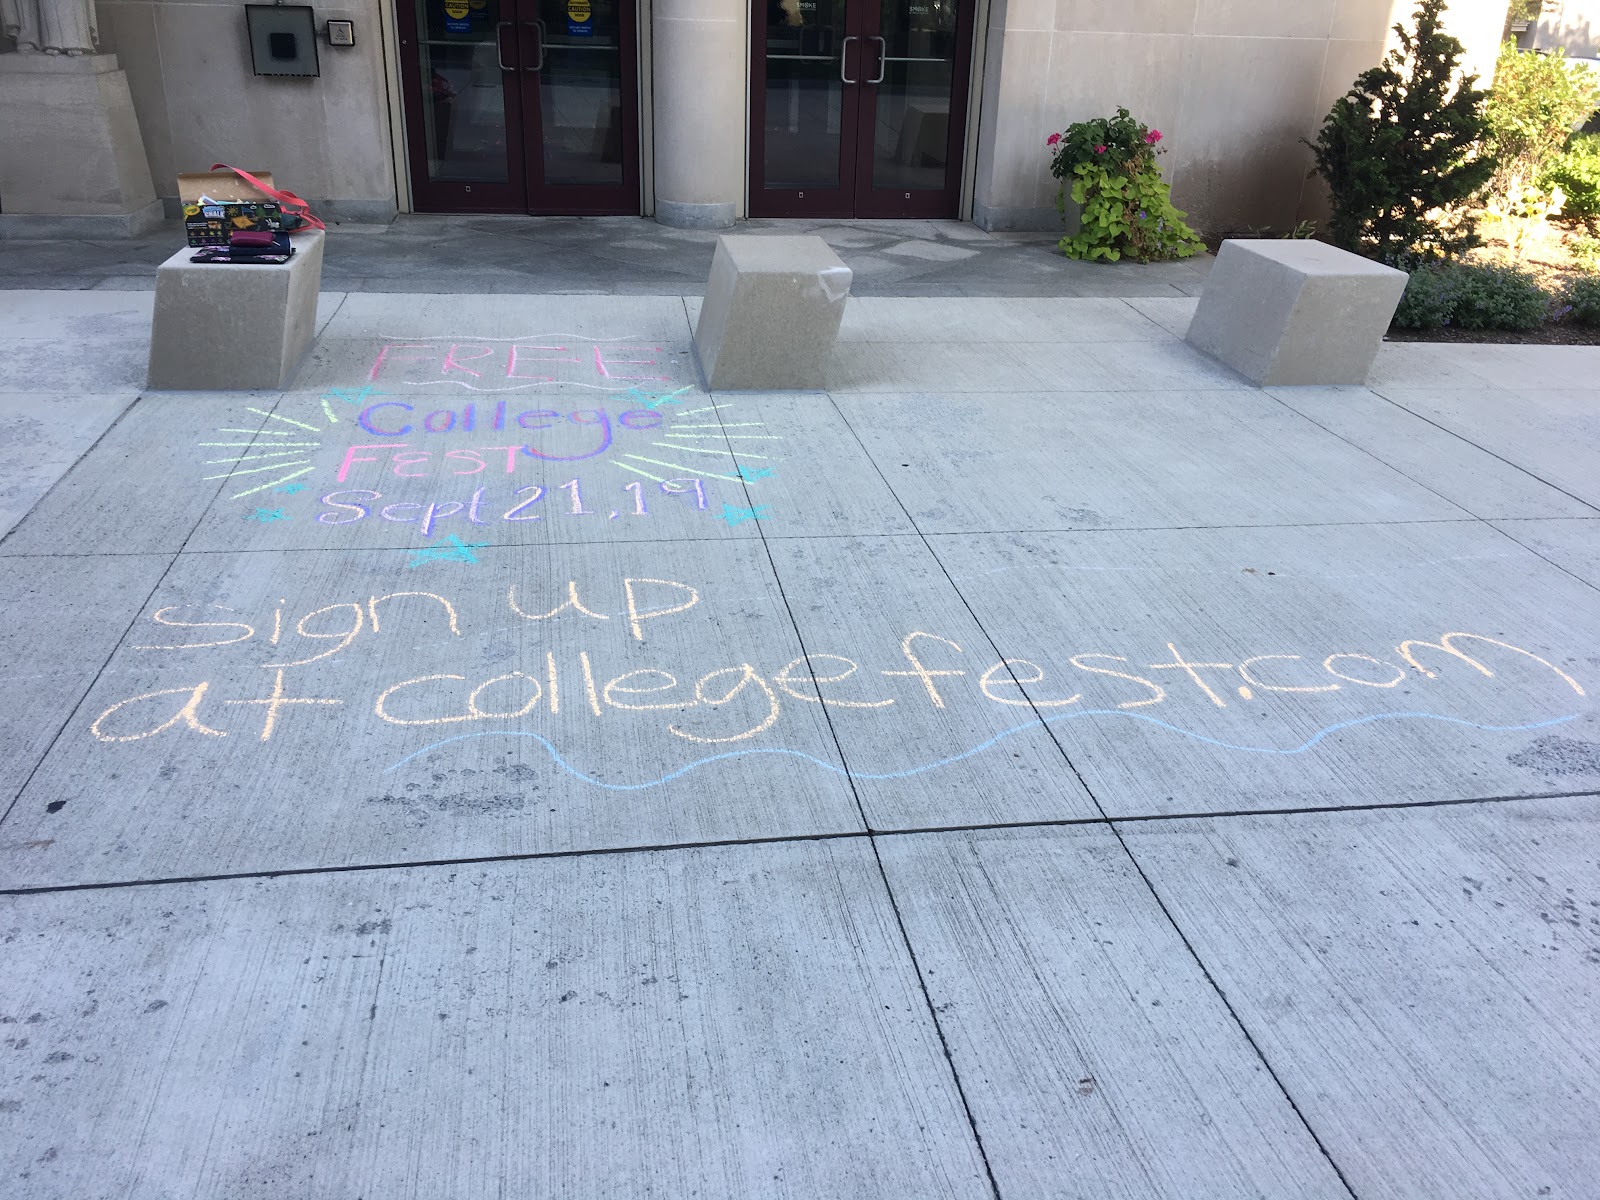 CAUTION
CAUTION
SMOKE
CHALK
FREE
College
FEST
Sept 21, 19
sign up
at collegefest.com